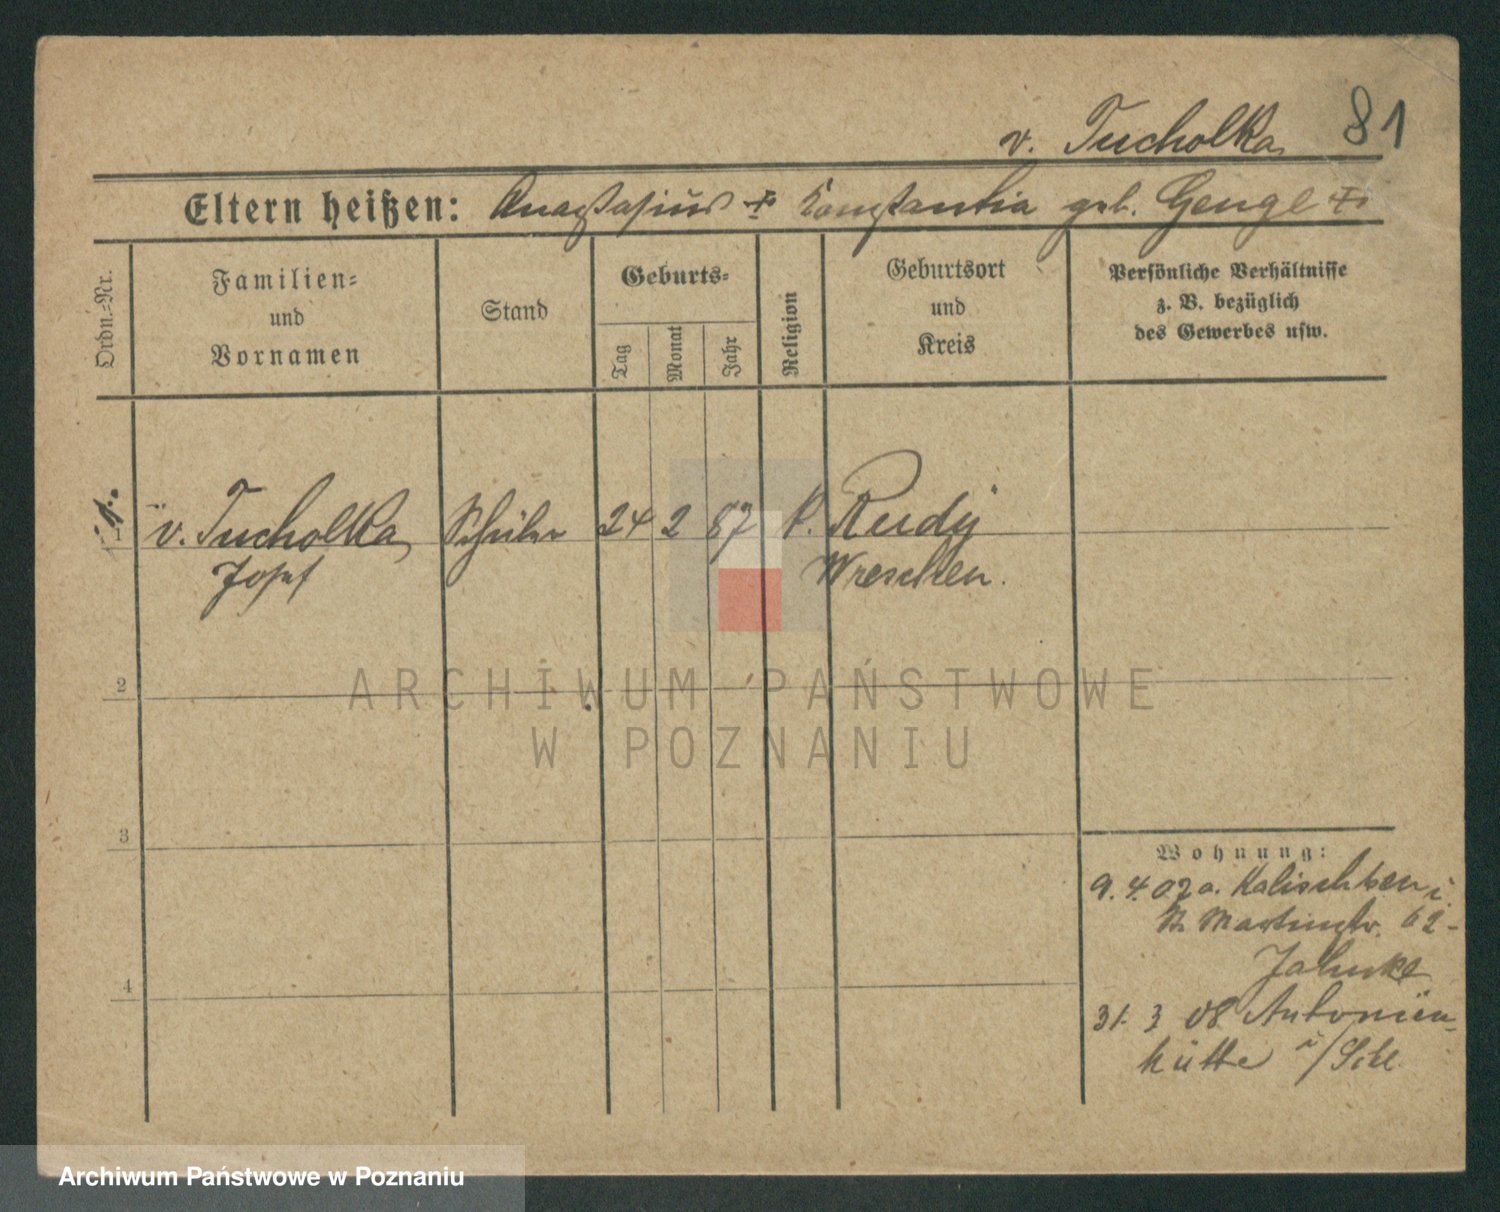 81
v. Tucholka
Eltern heißen: Anastasius + Konstantia geb. Gengl +
Ordn.=Nr.
Familien=
und
Vornamen
Stand
Geburts=
Tag
Monat
Jahr
Religion
Geburtsort
und
Kreis
Persönliche Verhältnisse
z. B. bezüglich
des Gewerbes usw.
1.
1
v. Tucholka Schüler 24 2 87 k. Rudy
Josef Wreschen.
2
3
4
ARCHIWUM PAŃSTWOWE
W POZNANIU
Wohnung:
9. 4. 07 a. Kalischken i.
St. Martinstr. 62-
Jahnke
31. 3 08 Antonien-
hütte i/Schl.
Archiwum Państwowe w Poznaniu